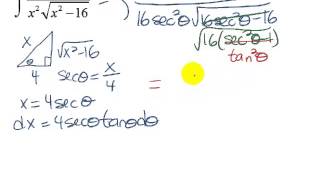 ∫ x²√x²-16 = ∫ 16sec²θ√16sec²θ-16
√16(sec²θ-1)
tan²θ
x √x²-16
4 θ
secθ = x/4
=
x = 4secθ
dx = 4secθtanθdθ